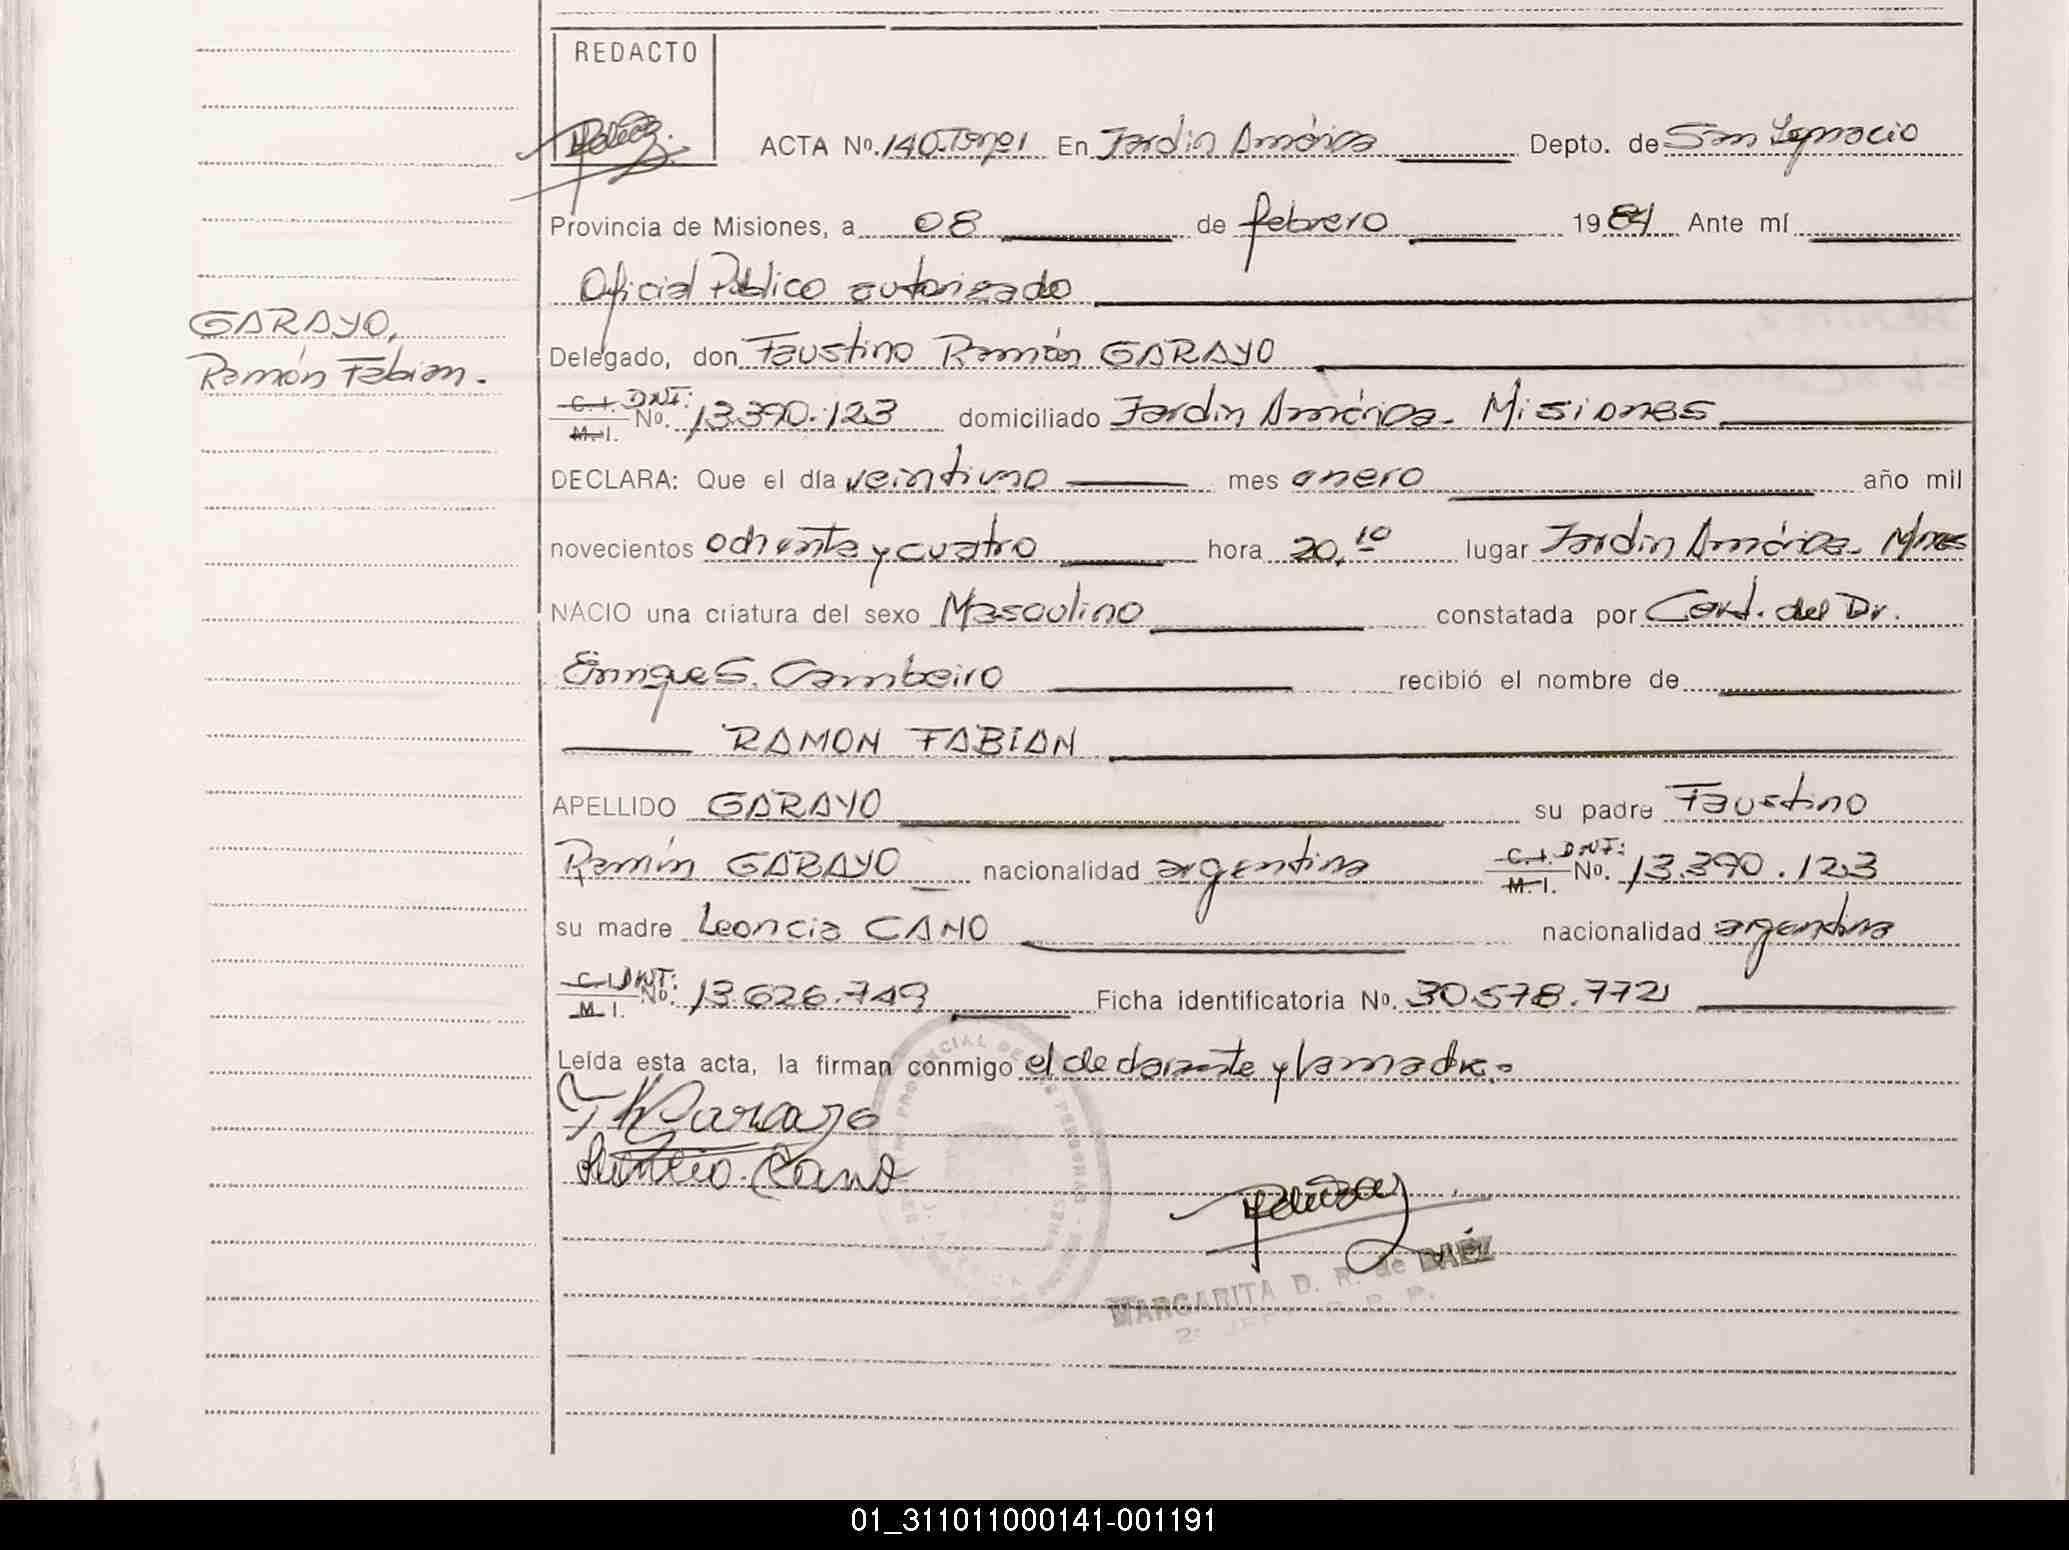 REDACTO
ACTA No. 140-Tº nº1 En Jardín América Depto. de San Ignacio
Provincia de Misiones, a 08 de febrero 1984 Ante mí
Oficial Público autorizado
GARAYO,
Ramón Fabian.
Delegado, don Faustino Ramón GARAYO
C. I. DNI:
M. I. No. 13.390.123 domiciliado Jardín América - Misiones
DECLARA: Que el día veintiuno mes enero año mil
novecientos ochenta y cuatro hora 20,10 lugar Jardín América - Mnes
NACIO una criatura del sexo Masculino constatada por Cert. del Dr.
Enrique S. Cambeiro recibió el nombre de
RAMON FABIAN
APELLIDO GARAYO su padre Faustino
Ramón GARAYO nacionalidad argentina C. I. DNI: M. I. No. 13.390.123
su madre Leoncia CANO nacionalidad argentina
C. I. DNI: M. I. No. 13.626.749 Ficha identificatoria No. 30.578.772
Leída esta acta, la firman conmigo el declarante y la madre.
Cano
MARGARITA D. R. de BAEZ
01_311011000141-001191